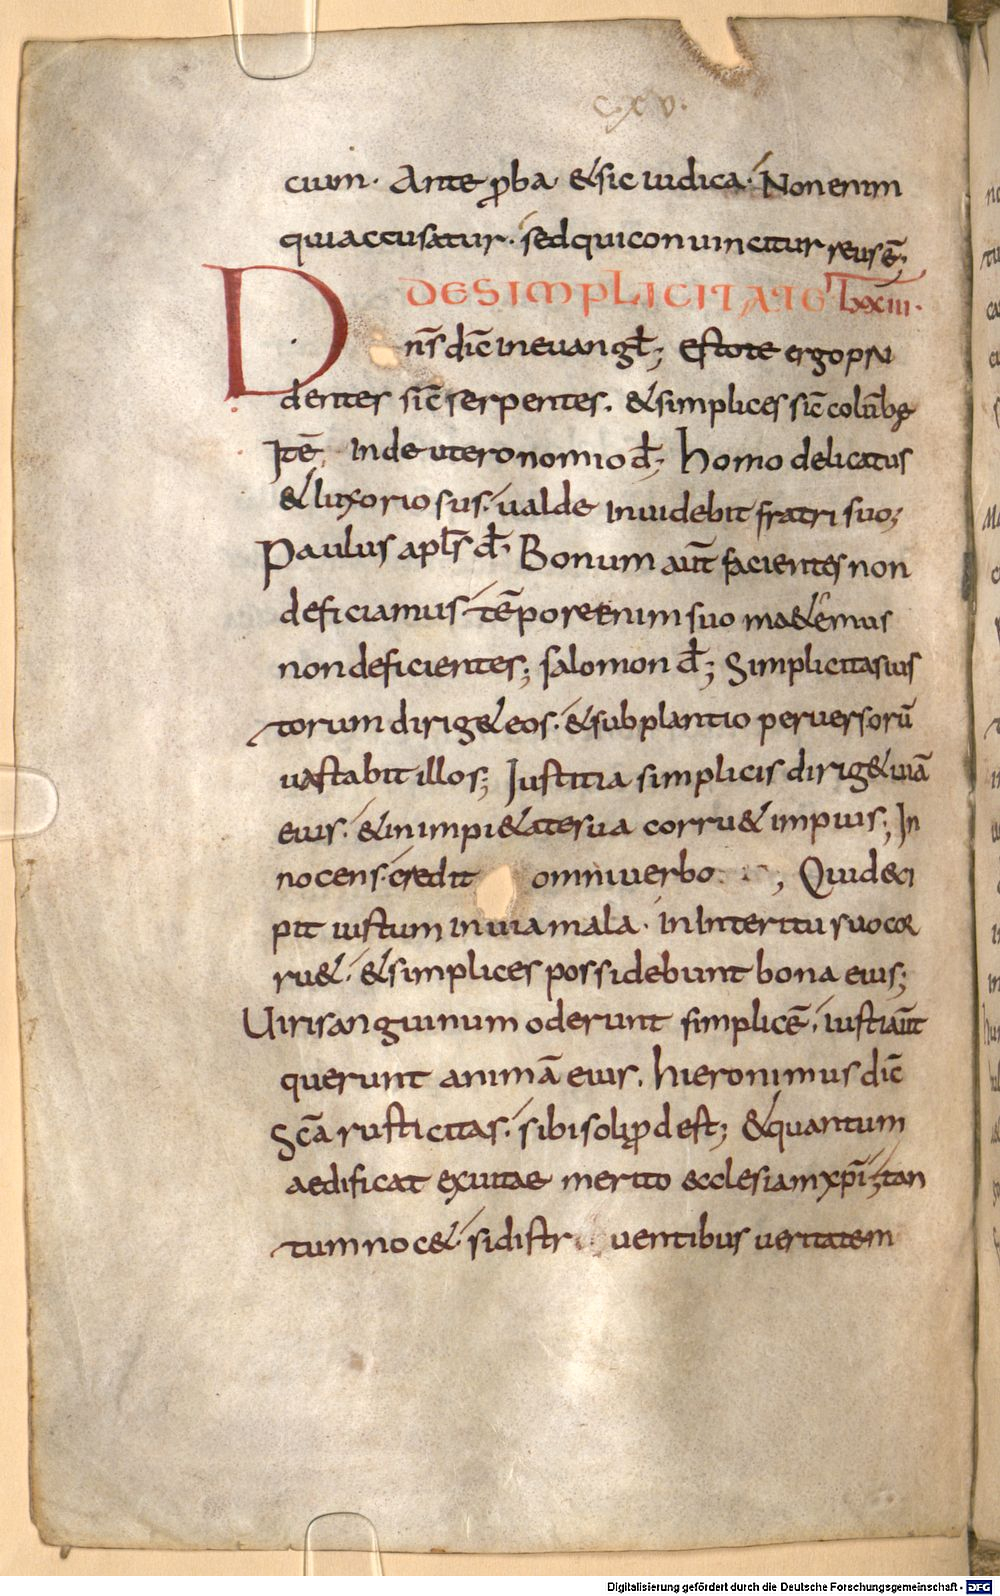 c.x v.
cium. Ante ꝓba &sic iudica. Non enim
qui accusatur. sed qui conuincitur reus ē;
DE SIMPLICITATE Lxxiii.
Dn̄s dic̄ in euangl̄; estote ergo pru
denter sic̄ serpentes. &simplices sic̄ colūbę
Itē, In deuteronomio d̄; homo delicatus
&luxoriosus. ualde inuidebit fratri suo;
Paulus apl̄s d̄. Bonum aut̄ facientes non
deficiamus. tēpore enim suo met&emus
non deficientes; salomon d̄; Simplicitas ius
torum dirig& eos. &subplantio peruersorū
uastabit illos; Iustitia simplicis dirig& uiā
eius. &in impi&ate sua corru& impius; In
nocens credit omni uerbo , Qui deci
pit iustum in uia mala. in interitu suo cor
ru&. &simplices possidebunt bona eius;
Uiri sanguinum oderunt simplicē. iusti aut̄
querunt animā eius. hieronimus dic̄
Sc̄a rusticitas. sibi soli ꝓdest; &quantum
aedificat ex uitae merito ecclesiam xp̄i; tan
tum noc& si distr uentibus ueritatem
Digitalisierung gefördert durch die Deutsche Forschungsgemeinschaft - DFG